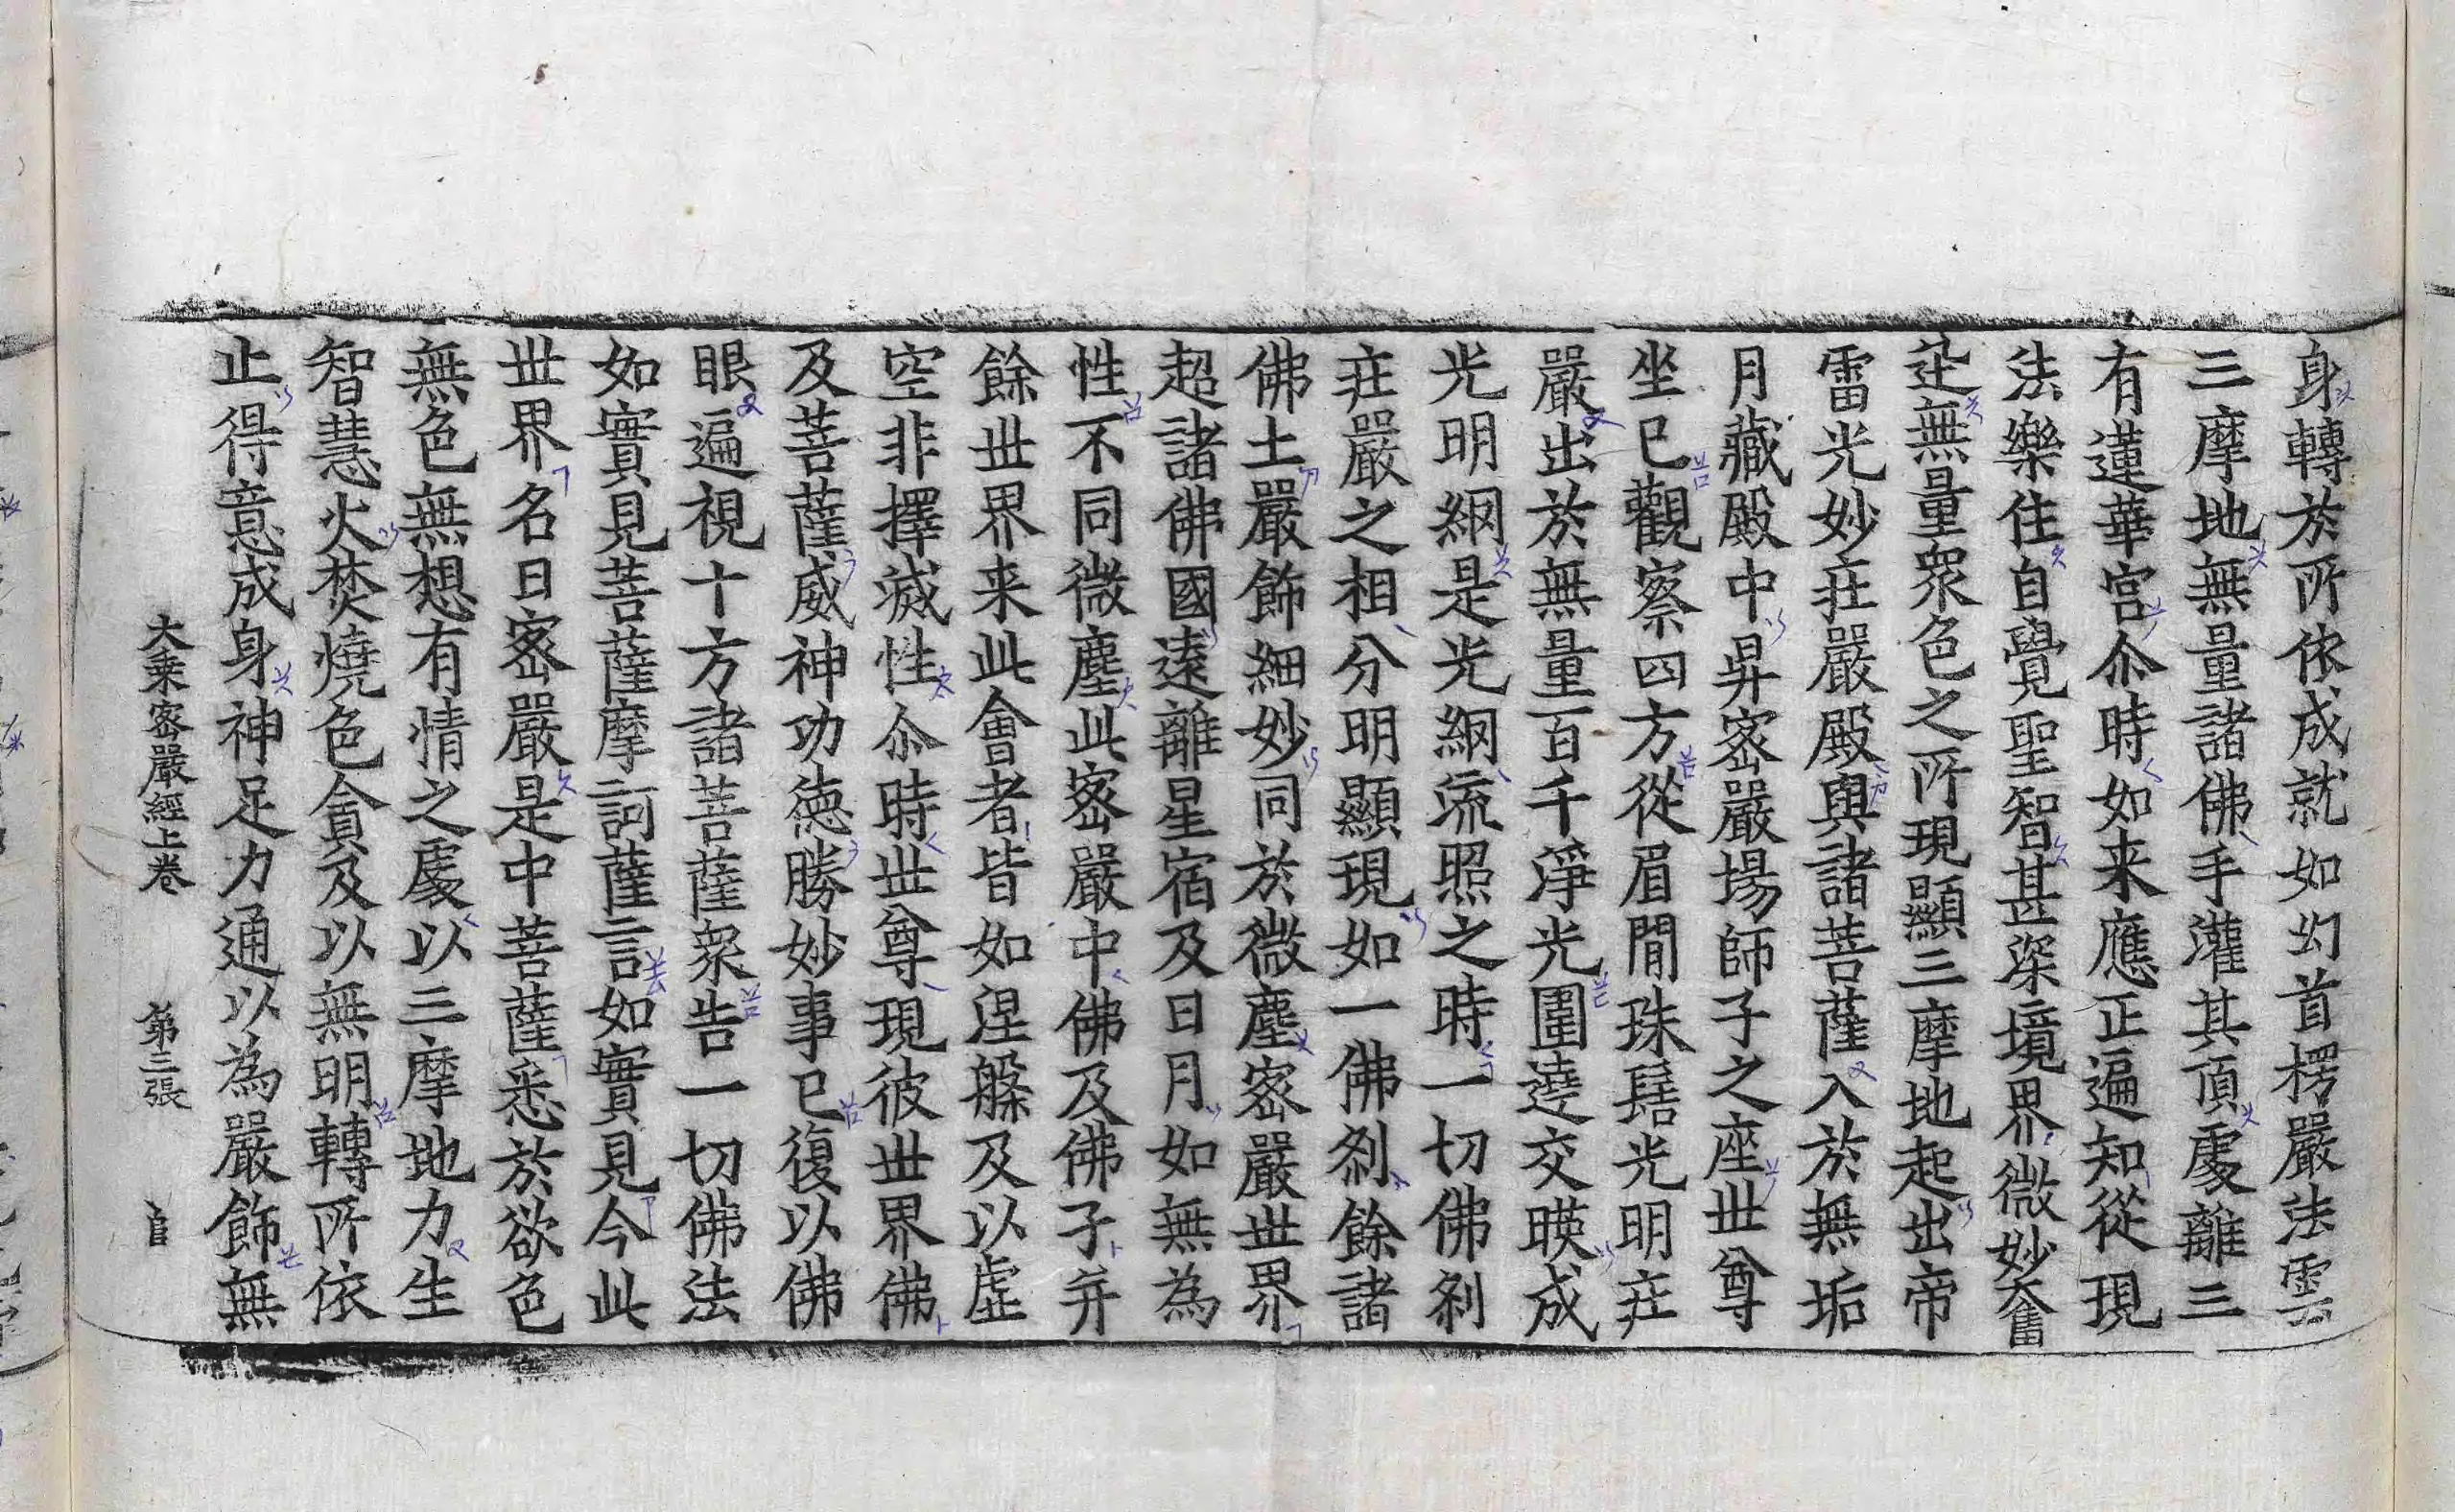 身轉於所依成就如幻首楞嚴法雲
三摩地無量諸佛手灌其頂處離三
有蓮華宮尒時如来應正遍知從現
法樂住自覺聖智甚深境界微妙奮
迅無量眾色之所現顯三摩地起出帝
雷光妙莊嚴殿與諸菩薩入於無垢
月藏殿中昇密嚴場師子之座世尊
坐已觀察四方從眉間珠髻光明莊
嚴出於無量百千淨光圍遶交暎成
光明網是光網流照之時一切佛剎
莊嚴之相分明顯現如一佛剎餘諸
佛土嚴飾細妙同於微塵密嚴世界
超諸佛國遠離星宿及日月如無為
性不同微塵此密嚴中佛及佛子并
餘世界来此會者皆如涅槃及以虛
空非擇滅性尒時世尊現彼世界佛
及菩薩威神功德勝妙事已復以佛
眼遍視十方諸菩薩眾告一切佛法
如實見菩薩摩訶薩言如實見今此
世界名曰密嚴是中菩薩悉於欲色
無色無想有情之處以三摩地力生
智慧火焚燒色貪及以無明轉所依
止得意成身神足力通以為嚴飾無
大乘密嚴經上卷　第三張